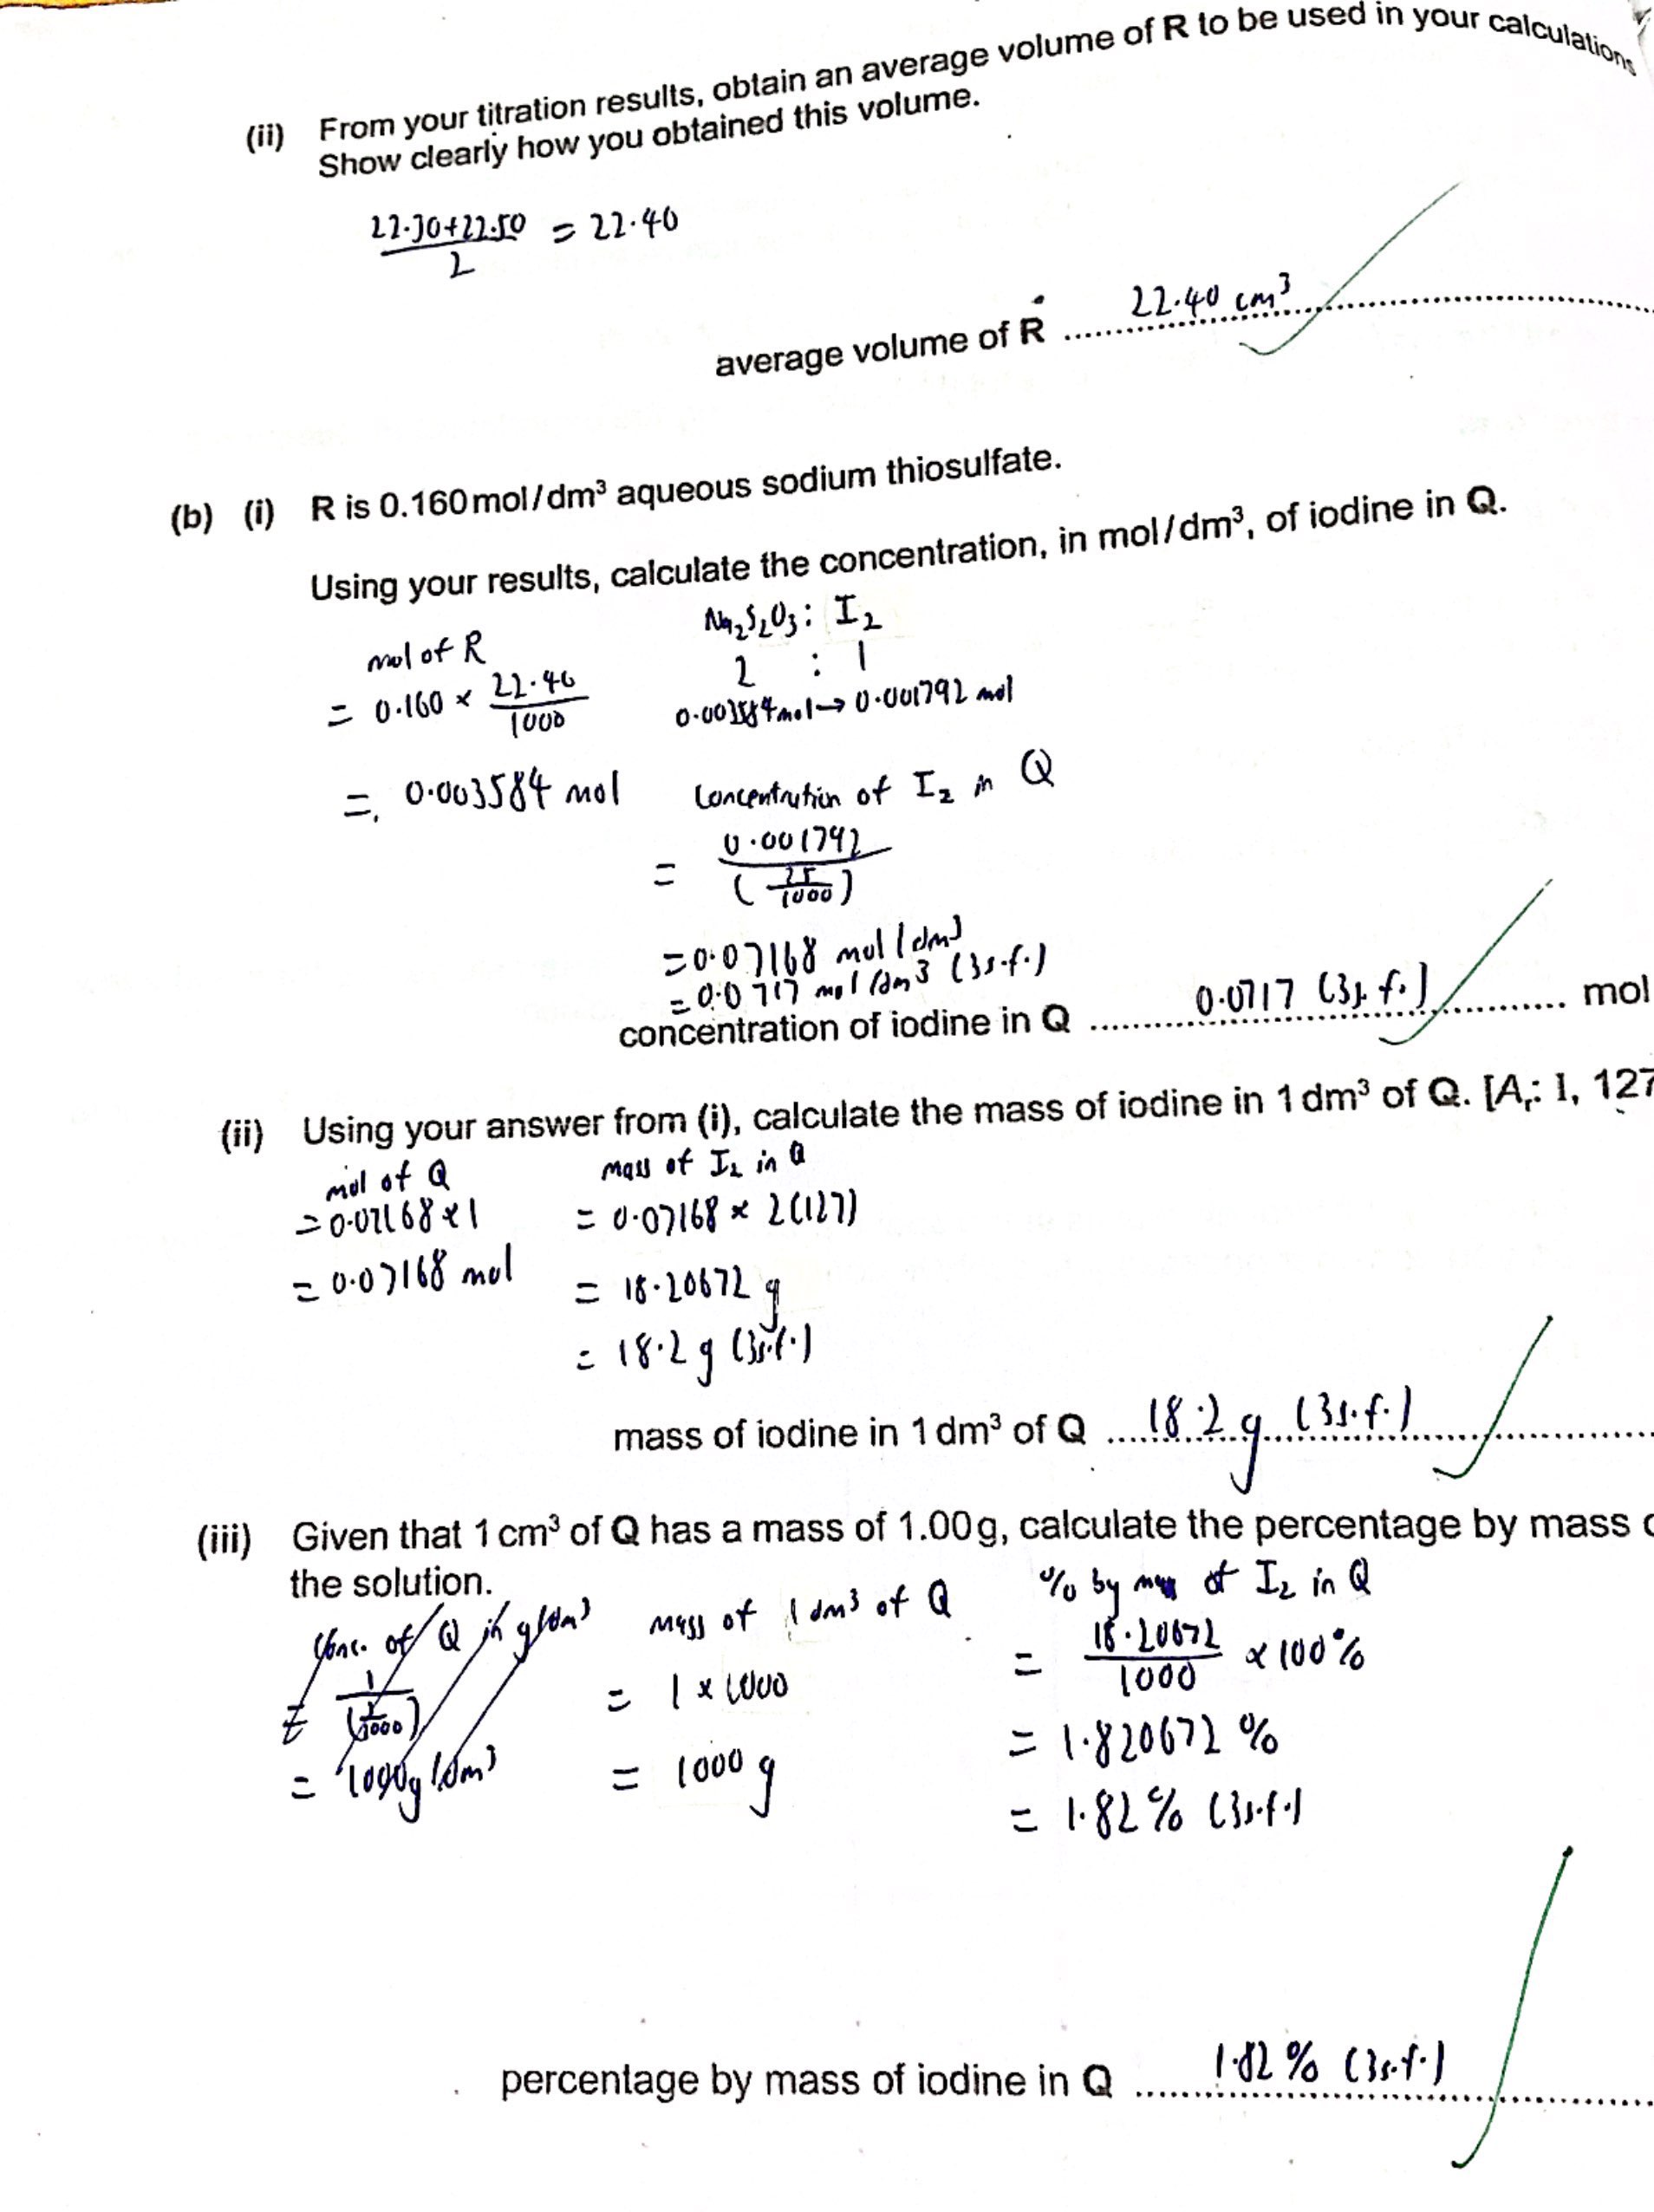 (ii) From your titration results, obtain an average volume of R to be used in your calculations
Show clearly how you obtained this volume.
22.30+22.50
2
= 22.40
average volume of R ........ 22.40 cm³
(b) (i) R is 0.160 mol/dm³ aqueous sodium thiosulfate.
Using your results, calculate the concentration, in mol/dm³, of iodine in Q.
mol of R
= 0.160 × 22.40
1000
= 0.003584 mol
Na₂S₂O₃ : I₂
2 : 1
0.003584 mol → 0.001792 mol
Concentration of I₂ in Q
= 0.001792
(25
1000)
= 0.07168 mol/dm³
= 0.0717 mol/dm³ (3s.f.)
concentration of iodine in Q ........ 0.0717 (3s.f.) ........ mol
(ii) Using your answer from (i), calculate the mass of iodine in 1 dm³ of Q. [Aᵣ: I, 127
mol of Q
= 0.07168 × 1
= 0.07168 mol
mass of I₂ in Q
= 0.07168 × 2(127)
= 18.20672 g
= 18.2 g (3s.f.)
mass of iodine in 1 dm³ of Q ........ 18.2 g (3s.f.)
(iii) Given that 1 cm³ of Q has a mass of 1.00 g, calculate the percentage by mass
the solution.
Conc. of Q in g/dm³
= 1
(1
1000)
= 1000g/dm³
mass of 1 dm³ of Q
= 1 × 1000
= 1000 g
% by mass of I₂ in Q
= 18.20672
1000
× 100%
= 1.820672 %
= 1.82% (3s.f.)
percentage by mass of iodine in Q ........ 1.82 % (3s.f.)